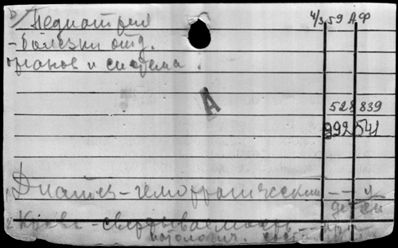 Педиатрия
-болезни отд.
органов и система.
4/3 59 А.Ф
А
528 839
992 541
Диатез-геморрагический -- у
детей
Кровь-свертываемость
патологич.